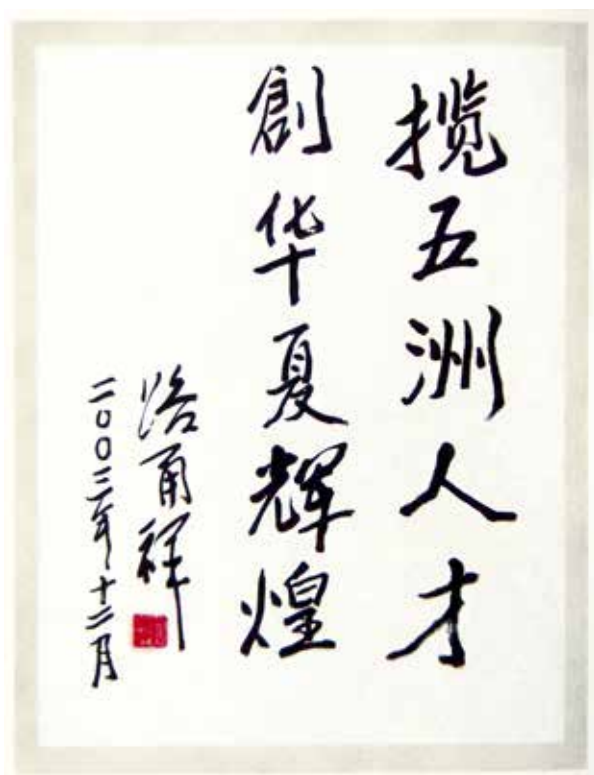 揽五洲人才
創华夏辉煌
路甬祥
二00三年十二月